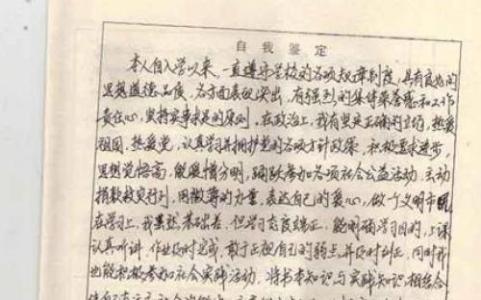 自我鉴定
本人自入学以来，一直遵守学校的各项规章制度，具有良好的
思想道德品质，各方面表现突出，有强烈的集体荣誉感和工作
责任心，坚持实事求是的原则。在政治上，我有坚定正确的立场，热爱
祖国，热爱党，认真学习并拥护党的各项方针政策，积极要求进步，
思想觉悟高，能爱憎分明，踊跃参加各项社会公益活动，主动
捐款救灾行列，用微薄的力量，表达自己的爱心，做个文明市民
在学习上，我虽然基础差，但学习态度端正，能明确学习目的，上课
认真听讲，作业及时完成，敢于正视自己的弱点并及时纠正，同时我
也能积极参加社会实践活动，将书本知识与实践知识相结合